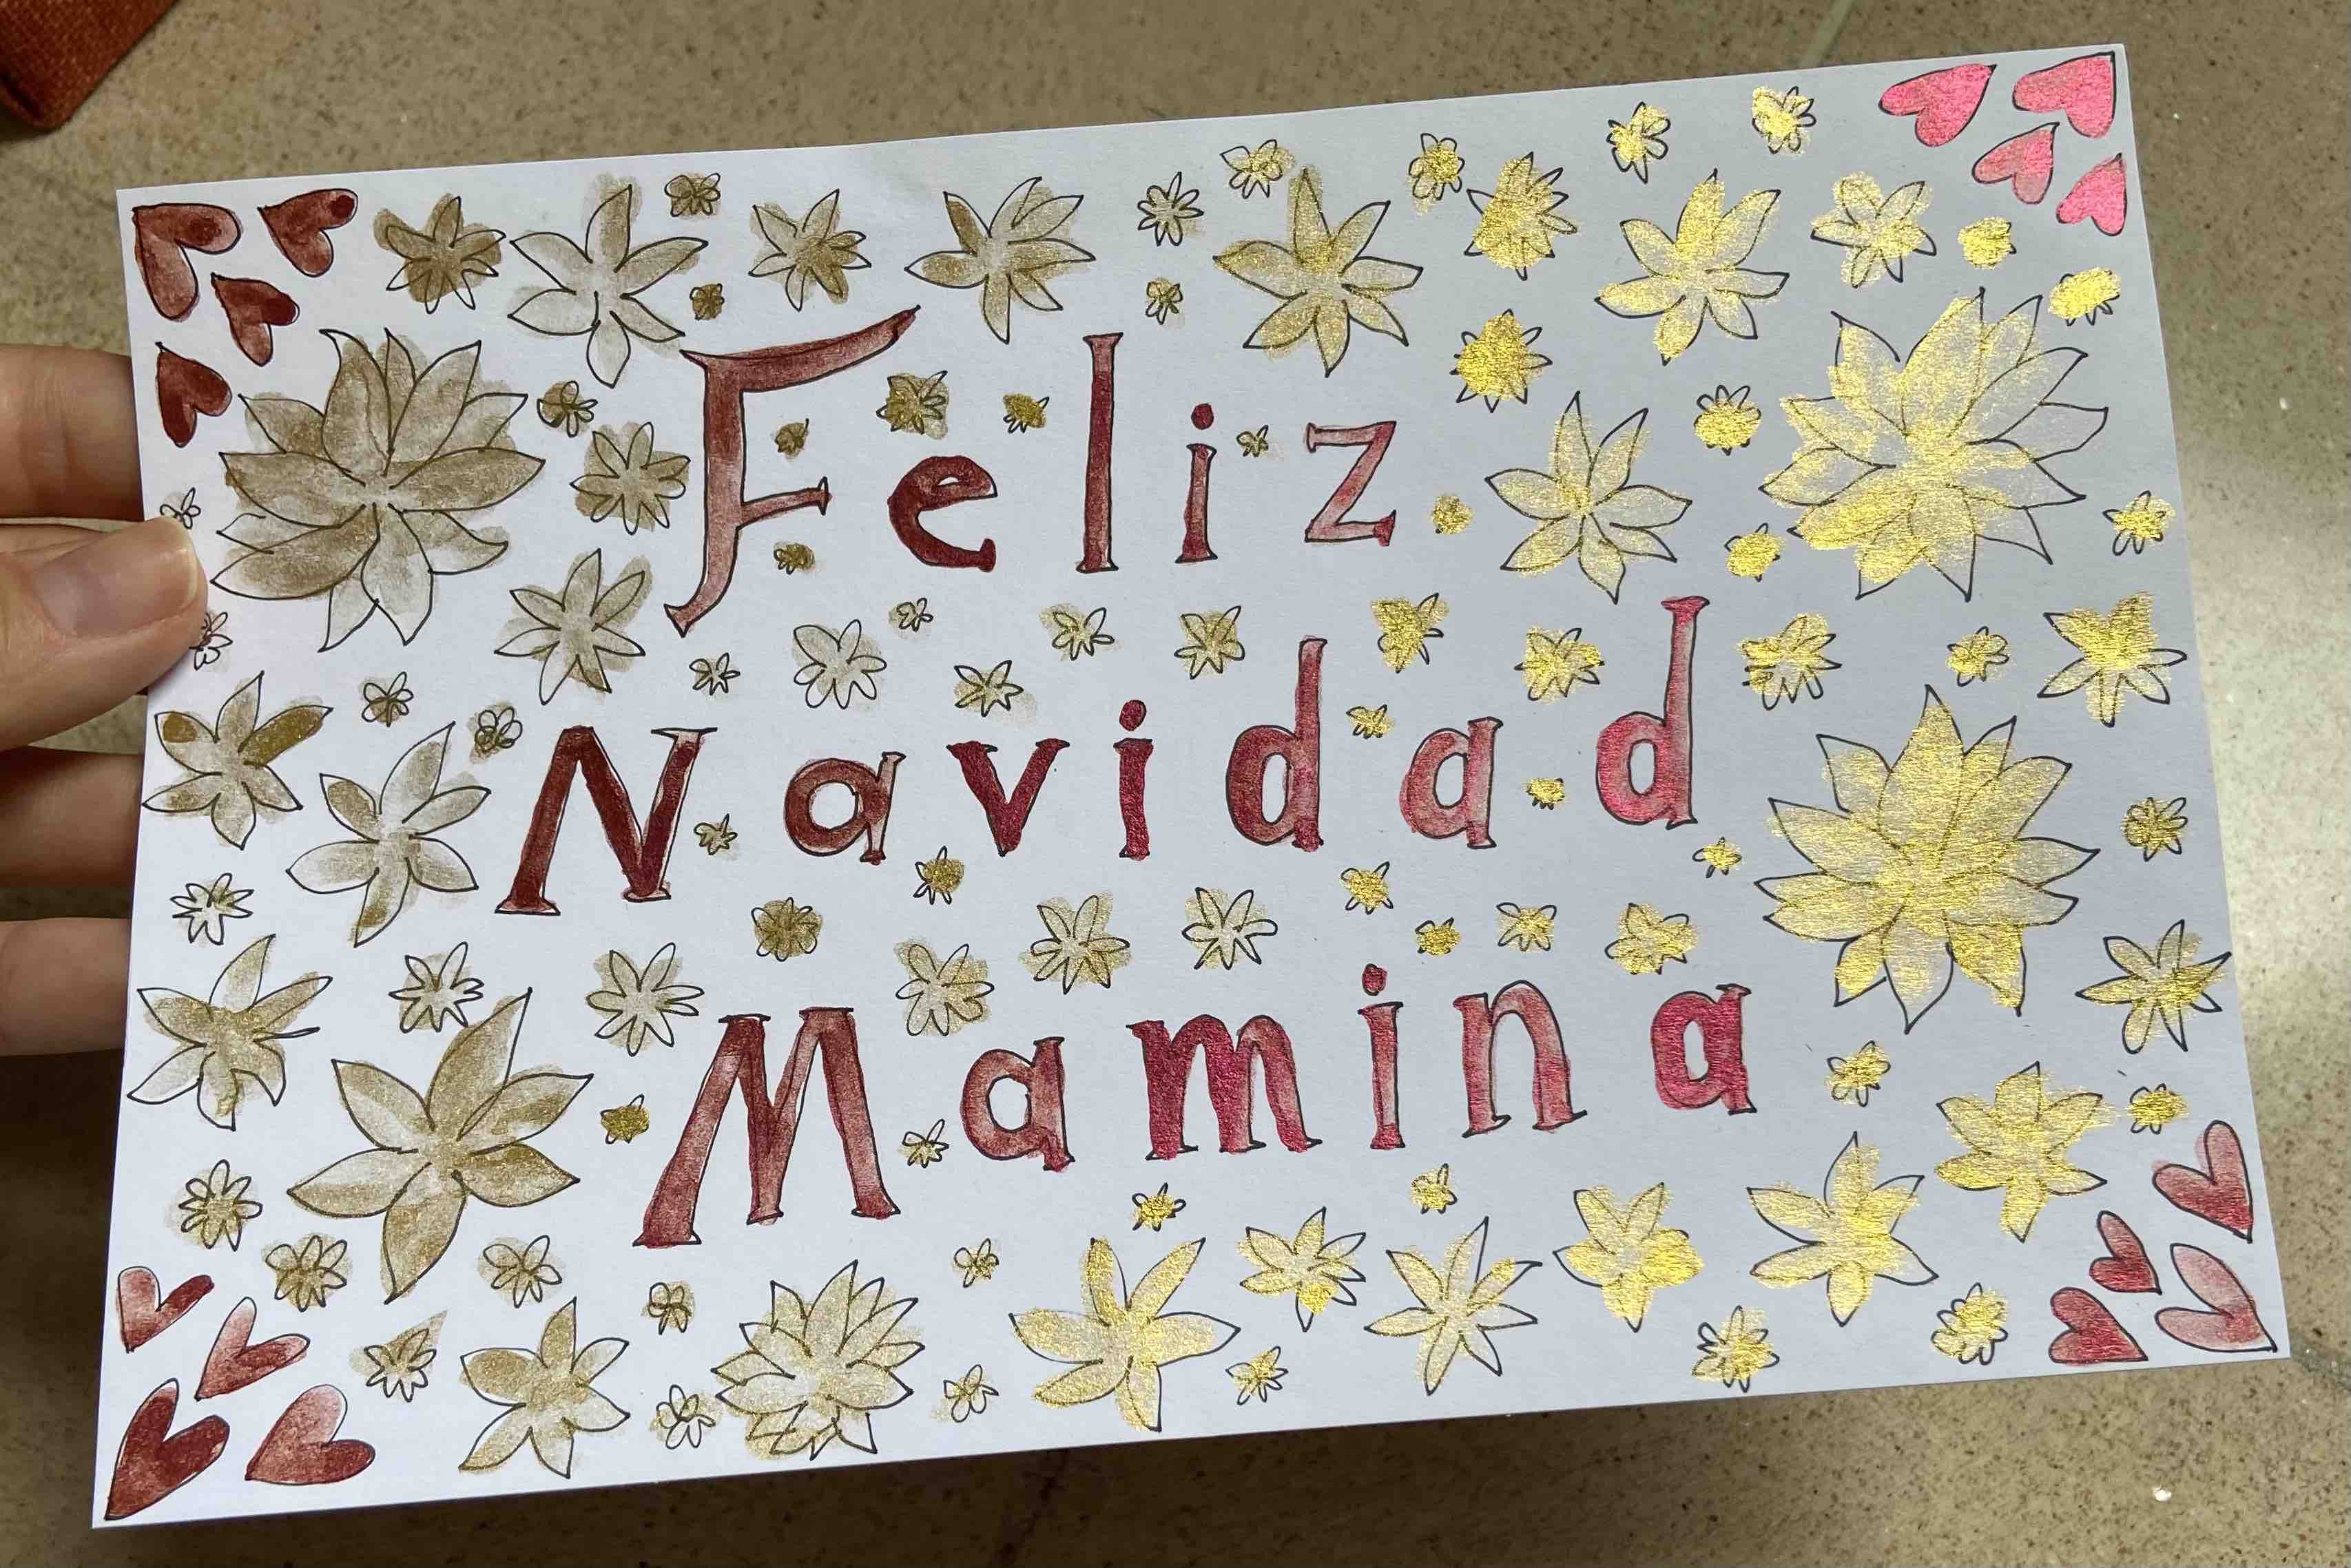 Feliz
Navidad
Mamina